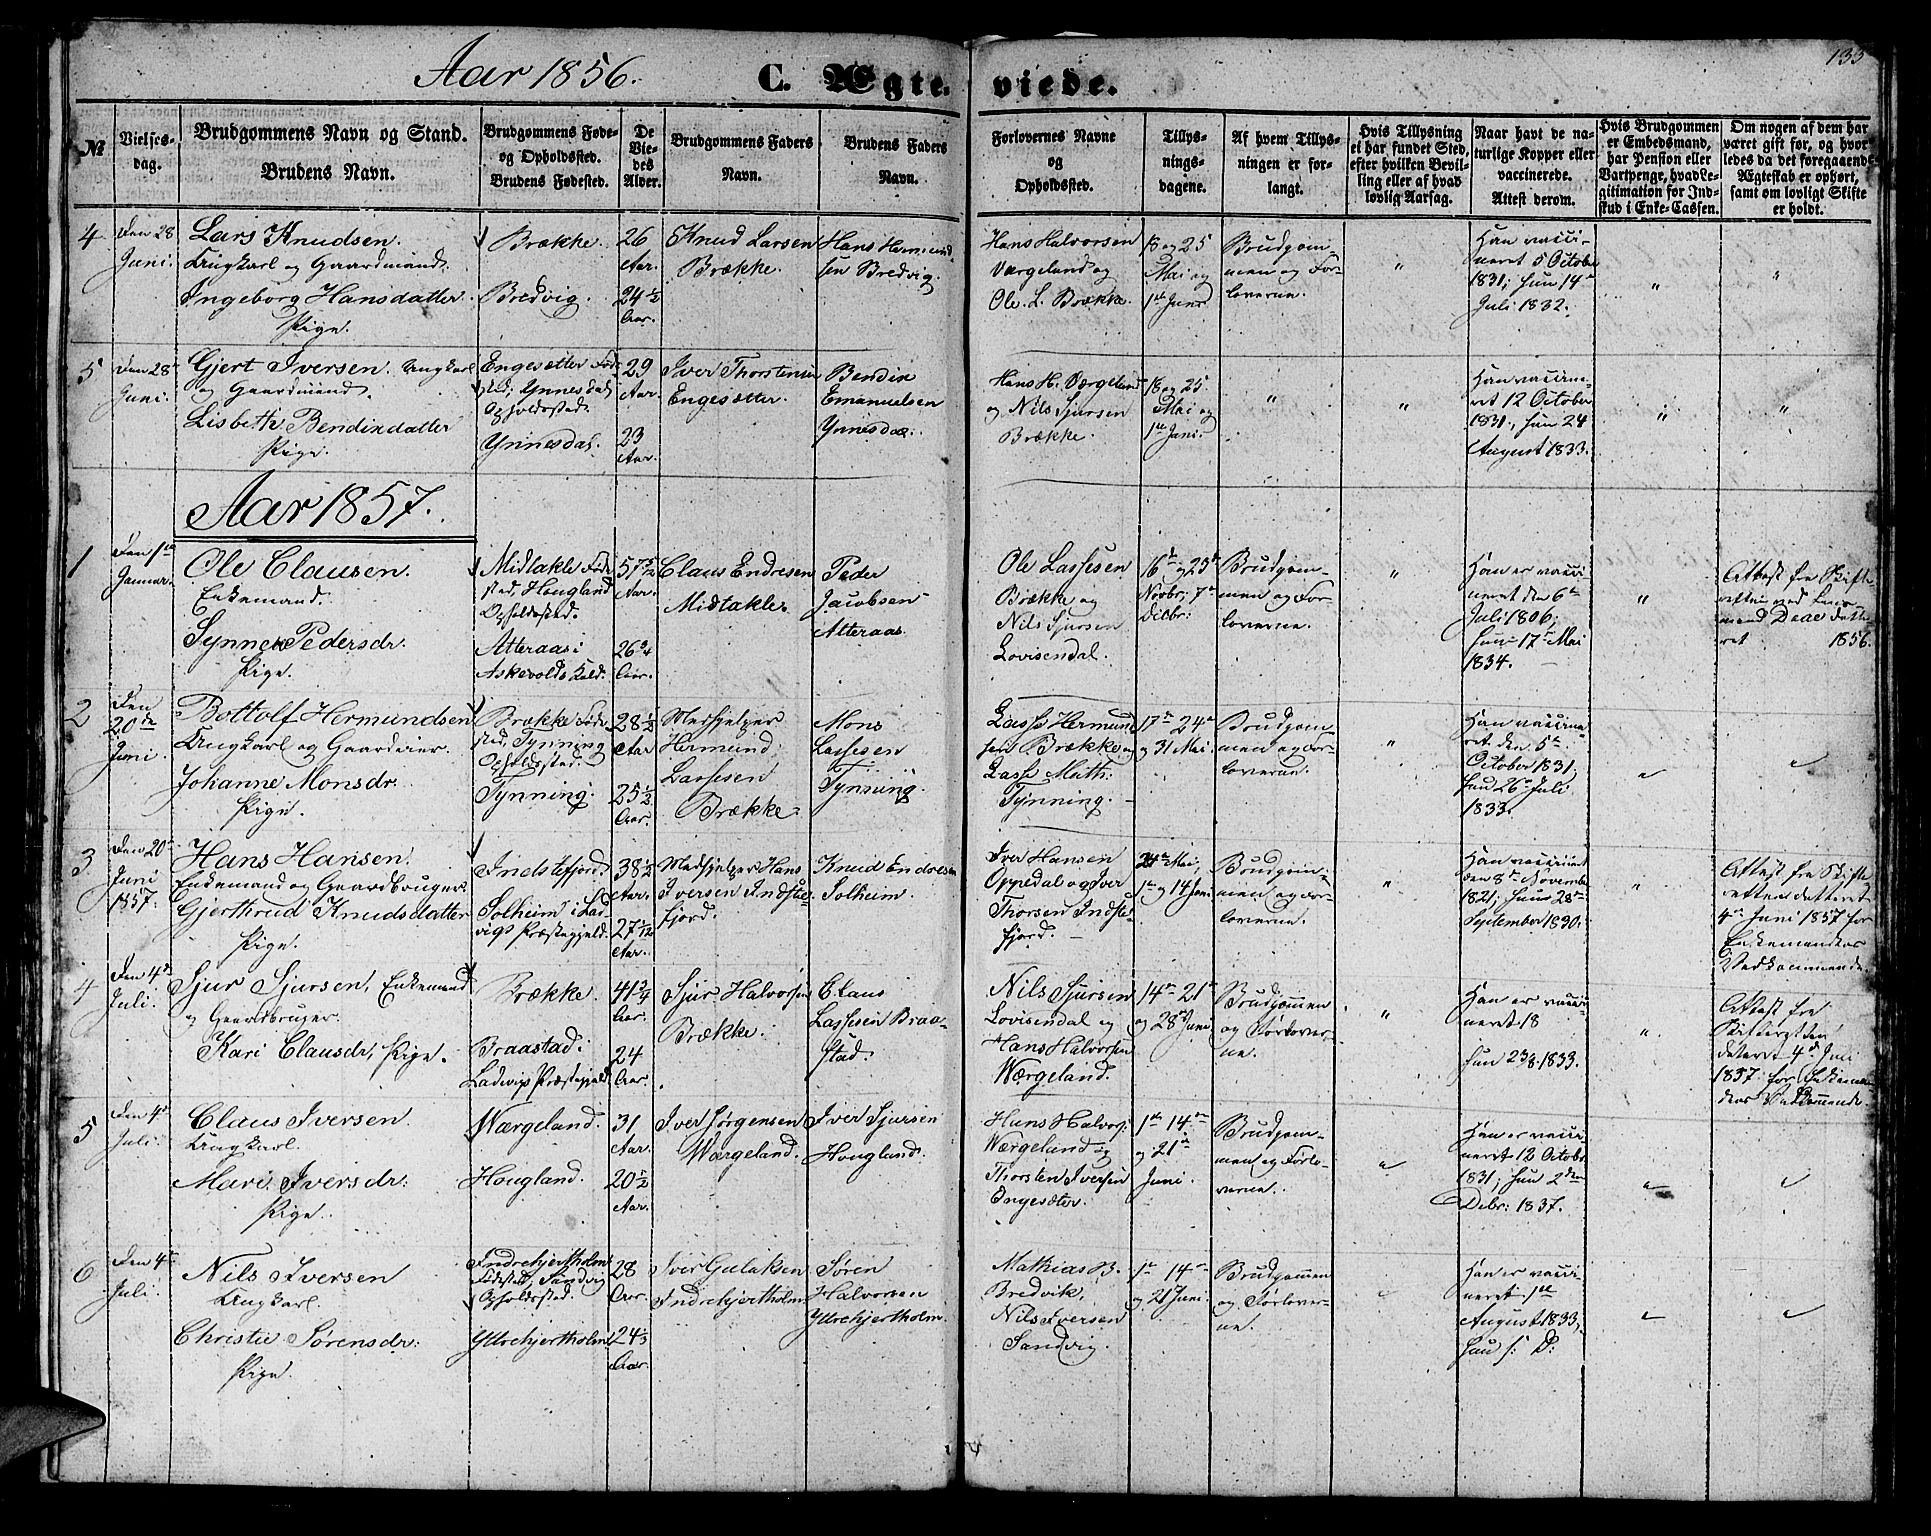 Aar 1856. C. Ægte-viede. 133
№
Vielses-
dag.
Brudgommens Navn og Stand.
Brudens Navn.
Brudgommens Føde-
og Opholdssted.
Brudens Fødested.
De
Vie-
des
Alder.
Brudgommens Faders
Navn.
Brudens Faders
Navn.
Forlovernes Navne
og
Opholdssted.
Tillys-
nings-
dagene.
Af hvem Tillys-
ningen er for-
langt.
Hvis Tillysning
ei har fundet Sted,
efter hvilken Bevil-
ling eller af hvad
lovlig Aarsag.
Naar havt de na-
turlige Kopper eller
vaccinerede.
Attest derom.
Hvis Brudgommen
er Embedsmand,
har Pension eller
Vartpenge, hvad Le-
gitimation for Ind-
skud i Enke-Cassen.
Om nogen af dem har
været gift før, og hvor-
ledes da det foregaaende
Ægteskab er ophørt,
samt om lovligt Skifte
er holdt.
4
Den 28
Juni.
Lars Knudsen.
Ungkarl og Gaardmand.
Ingeborg Hansdatter.
Pige.
Brække.
Bredvig.
26
Aar.
24 1/2
Aar.
Knud Larsen
Brække.
Hans Hermund-
sen Bredvig.
Hans Halvorsen
Værgeland og
Ole L. Brække.
18 og 25
Mai og
1ste Juni.
Brudgom-
men og For-
loverne.
"
Han vacci-
neret 5 October
1831; hun 14de
Juli 1832.
"
"
5
Den 28
Juni.
Gjert Iversen. Ungkarl
og Gaardmand.
Lisbeth Bendixdatter
Pige.
Engesætter Føde-
sted; Ynnesdal
Opholdssted.
Ynnesdal.
29
Aar.
23
Aar.
Iver Thorstensen
Engesætter.
Bendix
Emanuelsen
Ynnesdal.
Hans H. Værgeland
og Nils Sjursen
Brække.
18 og 25.
Mai og
1ste Juni.
"
"
Han vaccine-
ret 12 October
1831, hun 24
August 1833.
"
"
Aar 1857.
1
Den 1ste
Januar.
Ole Clausen.
Enkemand.
Synneve Pedersdr.
Pige.
Midtakle Føde-
sted, Hougland
Opholdssted.
Atteraas i
Askevolds Kald.
57 5/12
Aar.
26 3/4
Aar.
Claus Endresen
Midtakle.
Peder
Jacobsen
Atteraas.
Ole Lassesen
Brække og
Nils Sjursen
Lovisendal.
16de og 23de
Novbr; 7de
Decbr:
Brudgom-
men og For-
loverne.
"
Han er vacci-
neret den 6te
Juli 1806;
hun 17de Mai
1834.
"
Attest fra Skifte-
retten ved Lens-
mand Deae date-
ret 1856.
2
Den
20de
Juni.
Bottolf Hermundsen
Ungkarl og Gaardeier.
Johanne Monsdr.
Pige.
Brække Føde-
sted, Tynning
Opholdssted.
Tynning.
28 1/2
Aar
25 1/2
Aar.
Medhjelper
Hermund
Lassesen
Brække
Mons
Lassesen
Tynning
Lasse Hermund-
sen Brække og
Lasse Math:
Tynning.
17de 24de
og 31 Mai.
Brudgom-
men og For-
loverne.
"
Han vaccine-
ret den 5te
October 1831,
hun 26de Juli
1833.
"
"
3
Den 20de
Juni
1857.
Hans Hansen.
Enkemand og Gaardbruger.
Gjerthrud Knudsdatter
Pige.
Indstefjord
Solheim i Lad-
vigs Præstegjeld.
38 1/2
Aar.
27 1/12
Aar.
Medhjelper Hans
Iversen Indste-
fjord.
Knud Endresen
Solheim.
Iver Hansen
Oppedal og Iver
Thorsen Indste-
fjord.
24de Mai,
1ste og 14 Juni
Brudgom-
men og For-
loverne.
"
Han vaccineret
den 8de November
1821; hun 28de
September 1830.
"
Attest fra Skifte-
retten dateret
4de Juni 1857 for
Enkemandens
Vedkommende.
4
Den 4de
Juli.
Sjur Sjursen, Enkemand
og Gaardbruger.
Kari Clausdr, Pige.
Brække.
Braastad i
Ladvigs Præstegjeld.
41 3/4
Aar.
24
Aar.
Sjur Halvorsen
Brække.
Claus
Lassesen Braa-
stad.
Nils Sjursen
Lovisendal og
Hans Halvorsen
Værgeland.
14de 21de
og 28de Juni
Brudgommen
og Forlover-
ne.
"
Han er vacci-
neret 18
hun 23/8 1833.
"
Attest fra
Skifteretten
dateret 4de Juli
1857 for Enkeman-
dens Vedkommende.
5
Den 4de
Juli.
Claus Iversen.
Ungkarl.
Mari Iversdr.
Pige.
Værgeland.
Hougland.
31
Aar.
20 1/2
Aar.
Iver Jørgensen
Værgeland.
Iver Sjursen
Hougland.
Hans Halvors:
Værgeland og
Thorsten Iversen
Engesæter.
1ste 14de
og 21de
Juni.
Brudgom-
men og Forlo-
verne.
"
Han er vacci-
neret 12 Octobr
1831; hun 2den
Debr: 1837.
"
"
6
Den 4de
Juli.
Nils Iversen
Ungkarl.
Christie Sørensdr.
Pige.
Indrehjertholm
Fødested, Sandvig
Opholdssted.
Yttrehjertholm
28
Aar.
24 1/3
Aar.
Iver Gulaksen
Indrehjertholm
Søren
Halvorsen
Yttrehjertholm.
Mathias B.
Bredvik,
Nils Iversen
Sandvig.
1ste 14de
og 21 Juni.
Brudgommen
og Forlover-
ne.
"
Han er vacci-
neret 1ste
August 1833,
hun s: D:
"
"